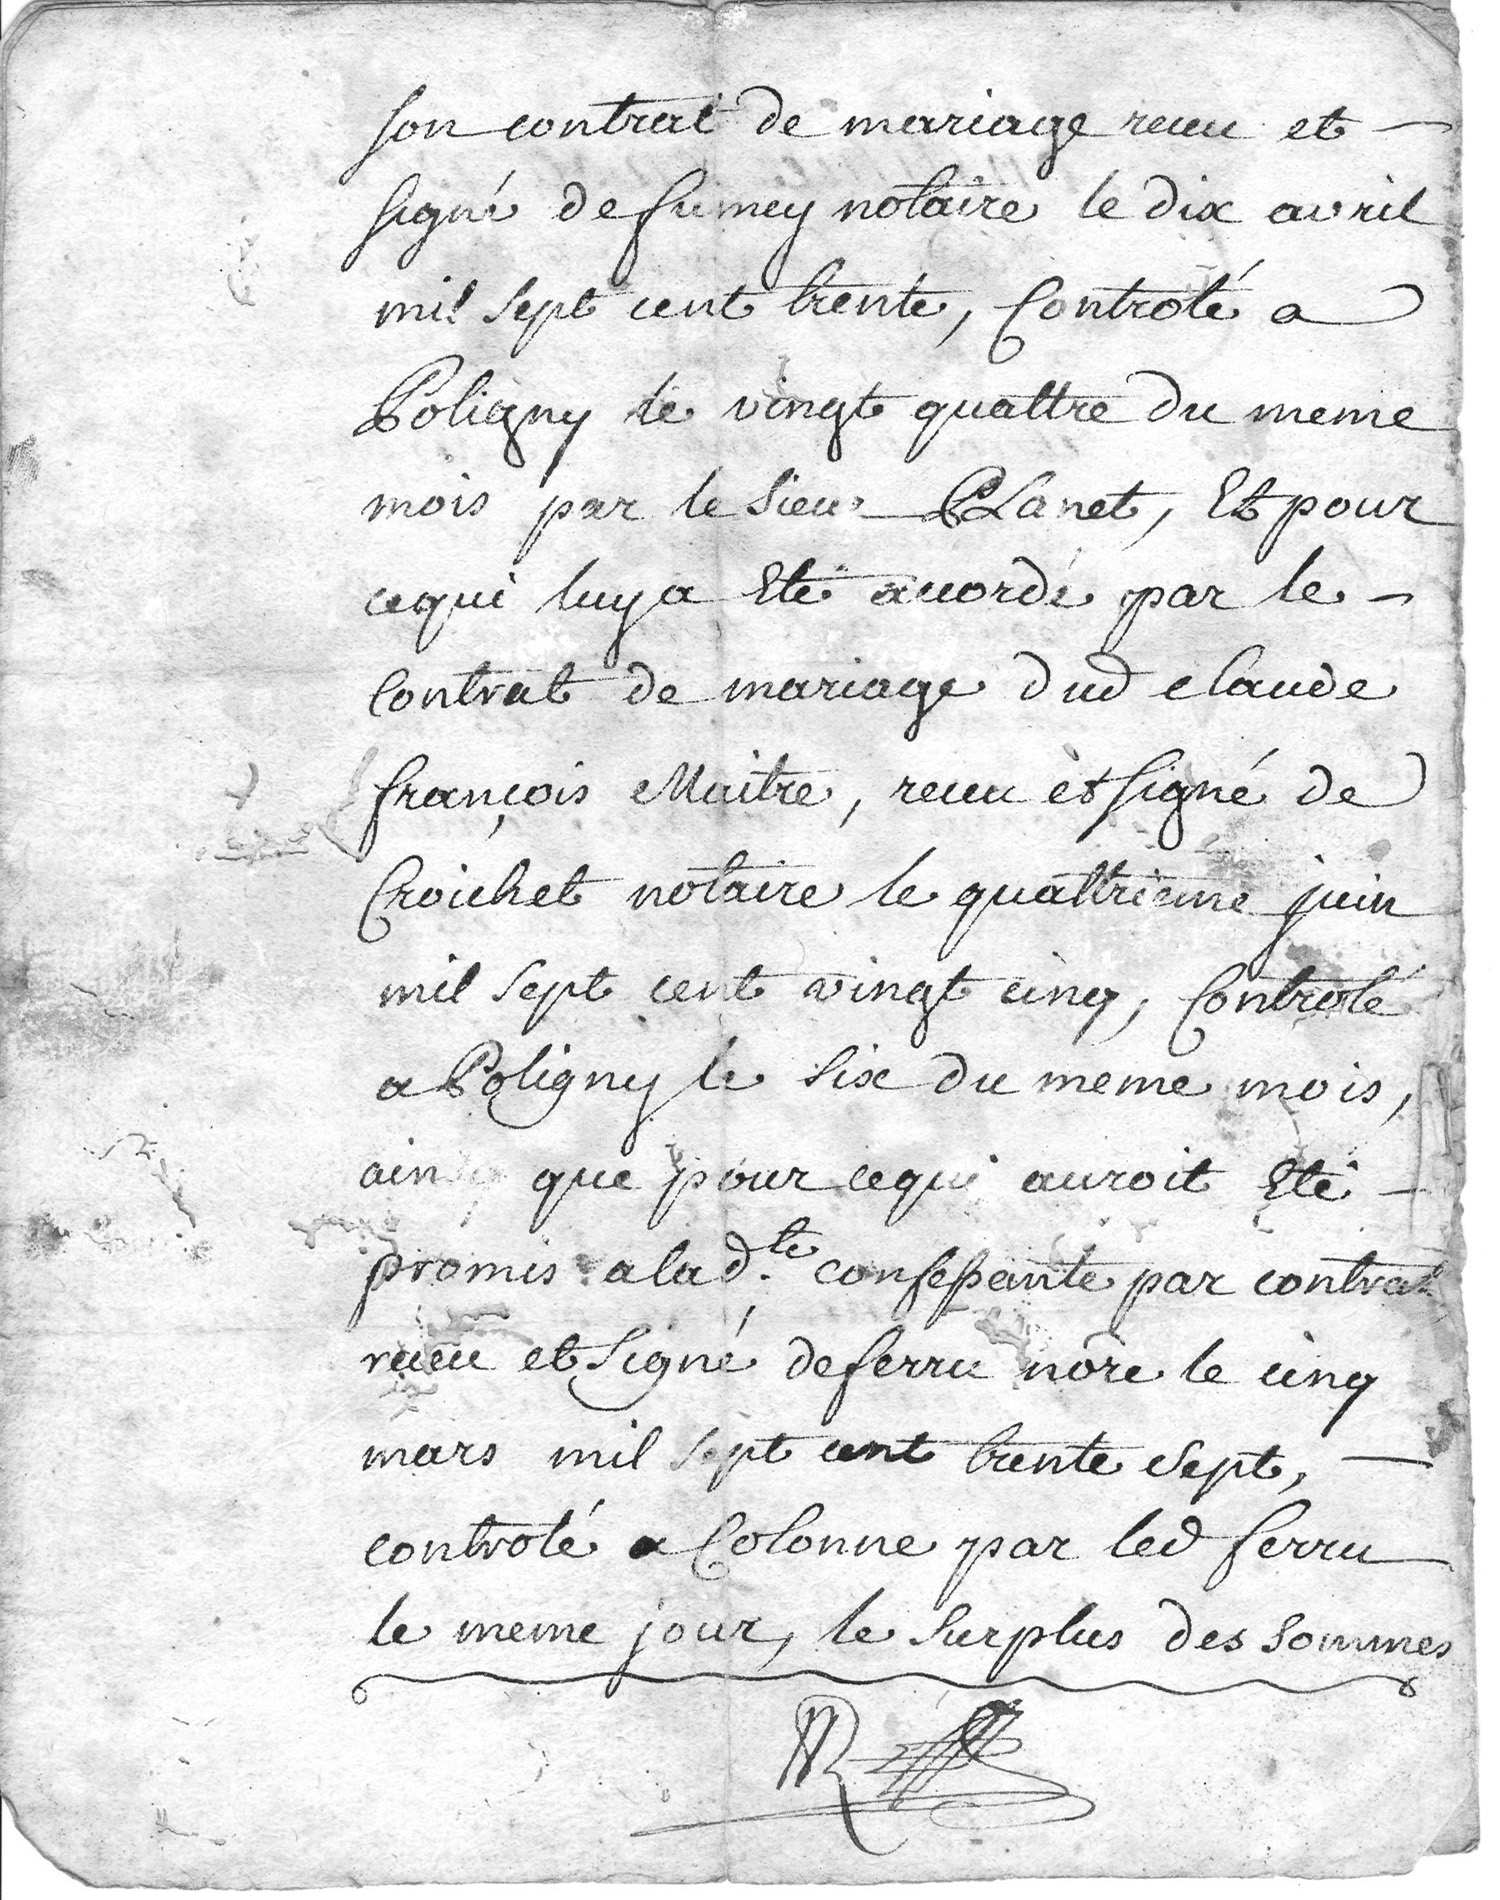 son contrat de mariage receu et
signé de fumey notaire le dix avril
mil sept cent trente, Controlé a
Poligny le vingt quattre du meme
mois par le sieur PLanet, Et pour
cequi luy a Eté acordé par le
Contrat de mariage dud claude
françois Maitre, receu et signé de
Croichet notaire le quattrieme juin
mil sept cent vingt cinq, Controlé
a Poligny le six du meme mois,
ainsy que pour cequi auroit Eté
promis a lad.te confessante par contrat
receu et signé de ferru nore le cinq
mars mil sept cent trente sept,
controlé a Colonne par led ferru
le meme jour, le surplus des sommes